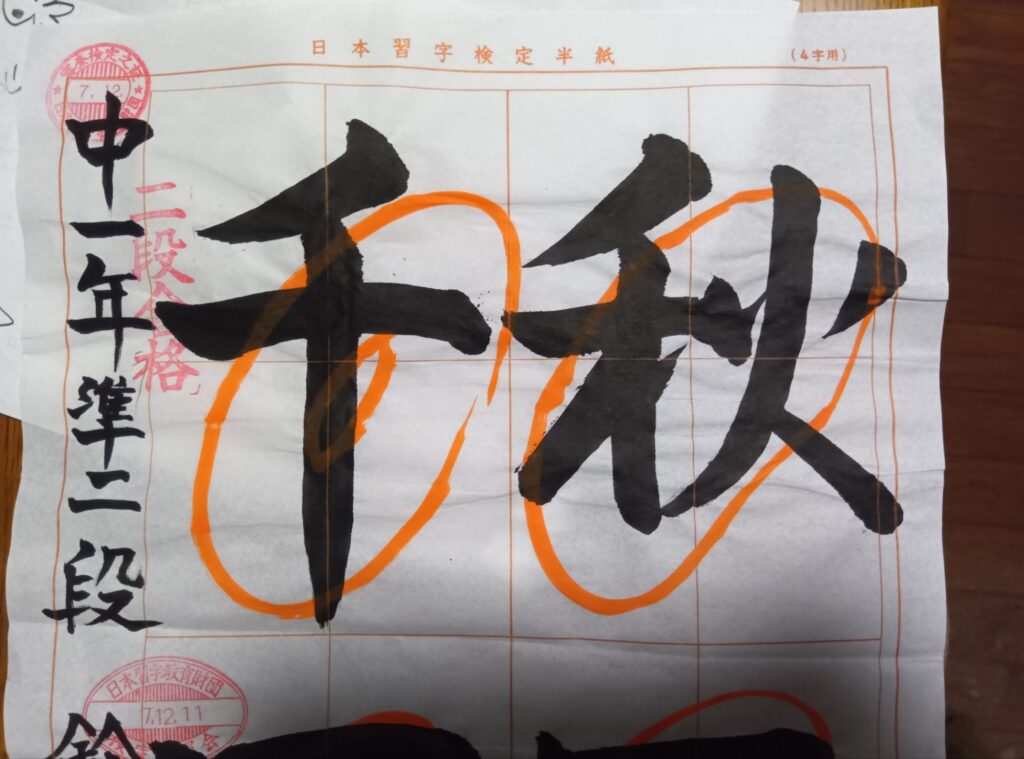 日本習字検定半紙
(4字用)
秋
千
「二段合格」
中一年準二段 鈴
7.12.
日本習字教育財団
7.12.11